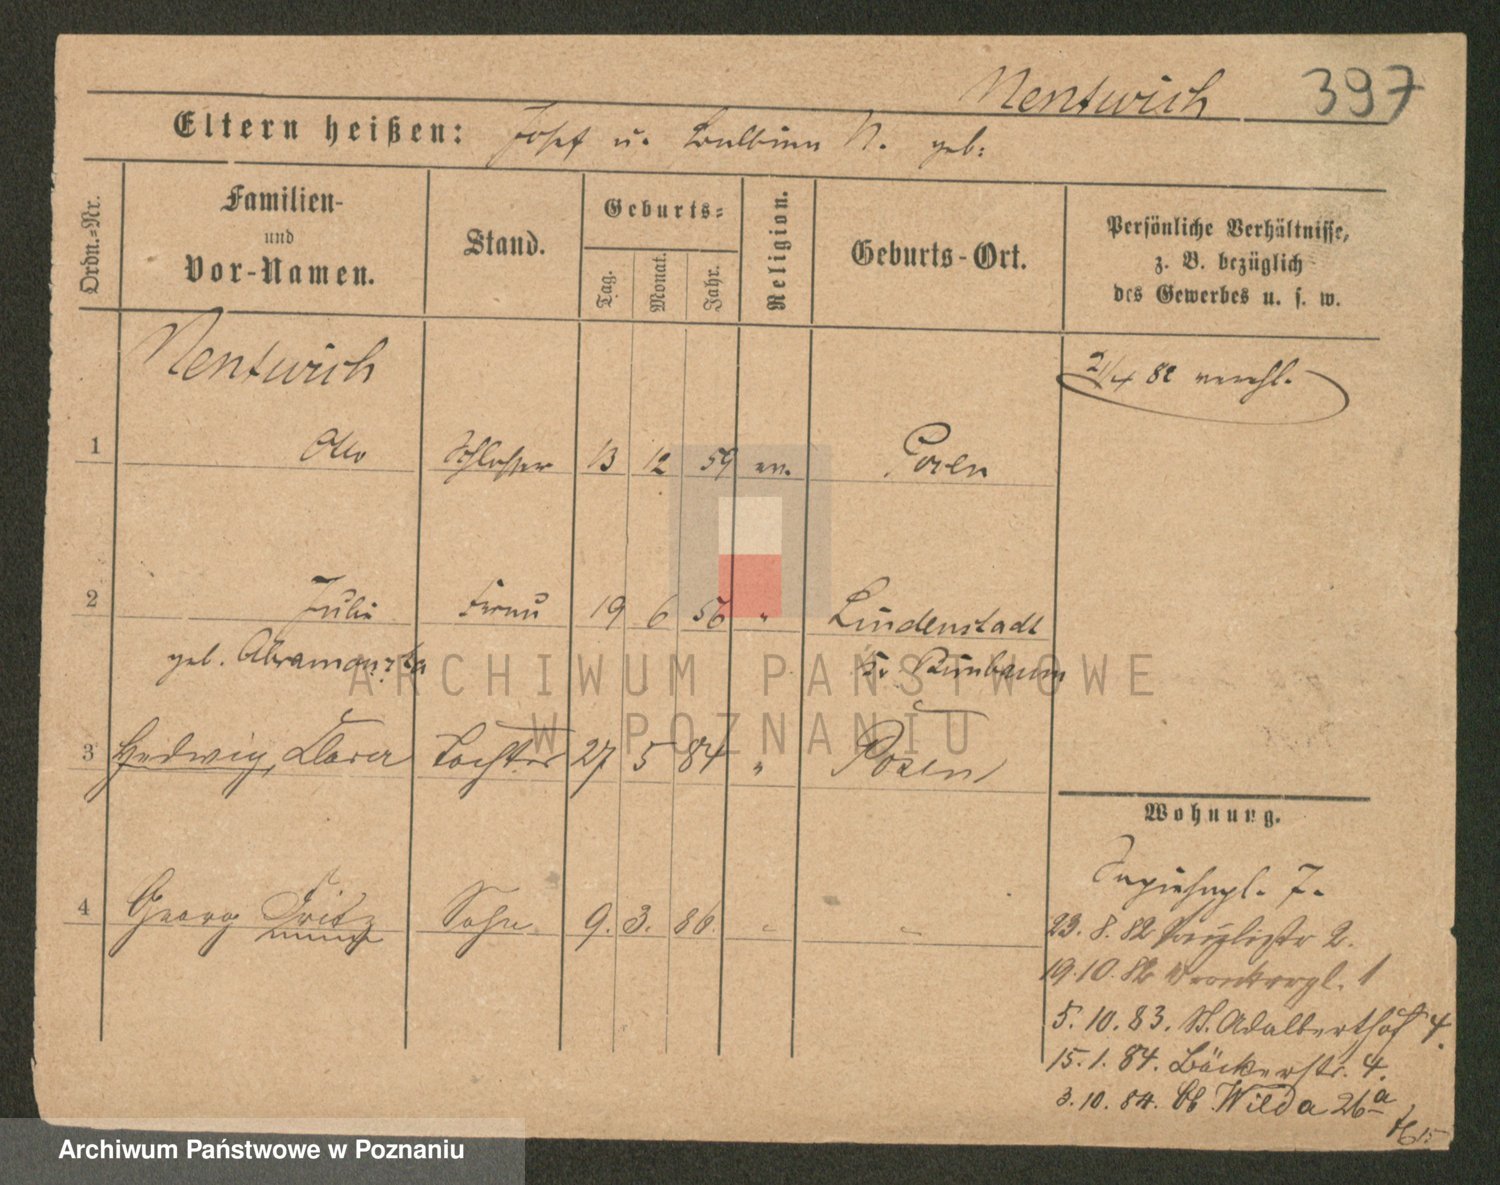 Nentwich 397
Eltern heißen: Josef u. Balbina N. geb:
Ordn.-Nr.
Familien-
und
Vor-Namen.
Stand.
Geburts-
Tag. Monat. Jahr.
Religion.
Geburts-Ort.
Persönliche Verhältnisse,
z. B. bezüglich
des Gewerbes u. s. w.
Nentwich
21/4 82 verehl.
1 Otto Schlosser 13 12 59 ev. Posen
2 Julie Frau 19 6 56 " Lindenstadt
geb. Abramowska Kr Birnbaum
3 Hedwig, Clara Tochter 27 5 84 " Posen
4 Georg Fritz Sohn 9. 3. 86. "
Wohnung.
Sapiehapl. 7.
23. 8. 82 2.
19. 10. 82 Wronkerpl. 1
5. 10. 83. St. Adalberthof 4.
15. 1. 84. Bäckerstr. 4.
3. 10. 84. Ob. Wilda 26a
ARCHIWUM PAŃSTWOWE
W POZNANIU
Archiwum Państwowe w Poznaniu